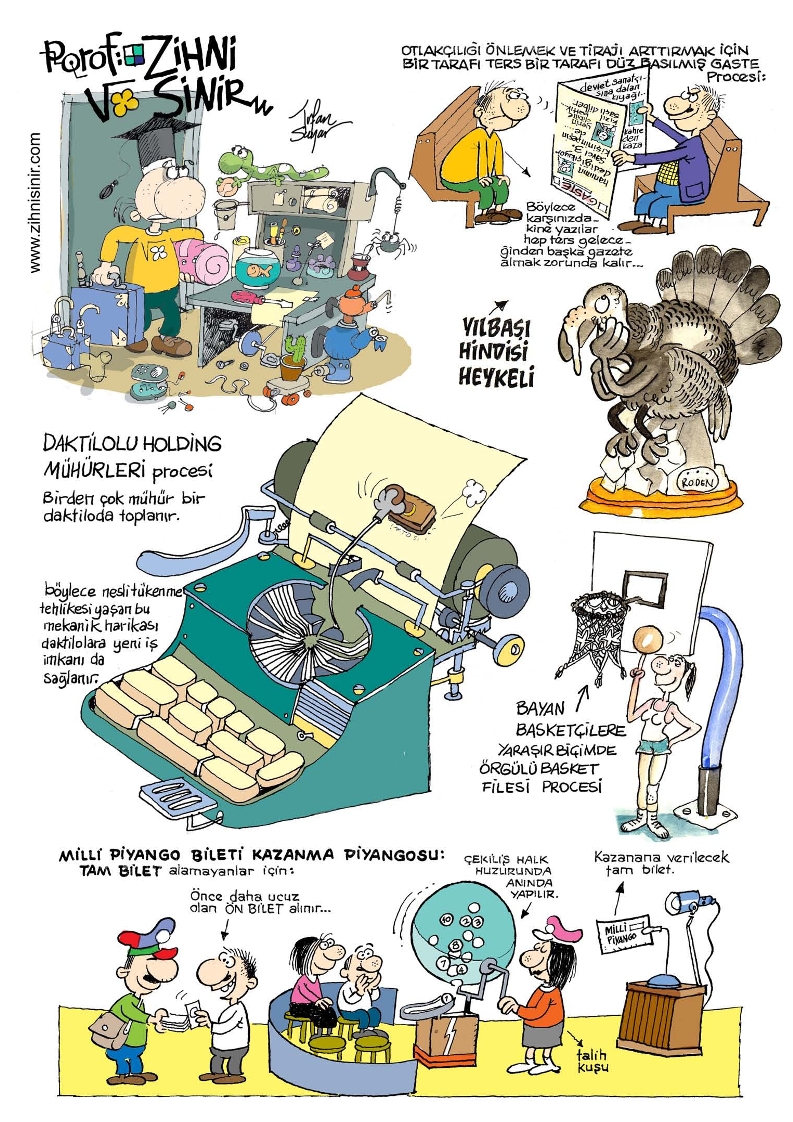 Pqrof: ZİHNİ
SİNİR
İrfan
Sayar
www.zihnisinir.com
OTLAKÇILIĞI ÖNLEMEK VE TİRAJI ARTTIRMAK İÇİN
BİR TARAFI TERS BİR TARAFI DÜZ BASILMIŞ GASTE
Procesi:
devlet sanatçı-
sına dalan
bıyağı..
kahre
den
kaza
GASTE
Böylece
karşınızda-
kine yazılar
hep ters gelece-
ğinden başka gazete
almak zorunda kalır...
YILBAŞI
HİNDİSİ
HEYKELİ
RODEN
DAKTİLOLU HOLDİNG
MÜHÜRLERİ procesi
Birden çok mühür bir
daktiloda toplanır.
böylece nesli tükenme
tehlikesi yaşan bu
mekanik harikası
daktilolara yeni iş
imkanı da
sağlanır.
BAYAN
BASKETÇİLERE
YARAŞIR BİÇİMDE
ÖRGÜLÜ BASKET
FİLESİ PROCESİ
MİLLİ PİYANGO BİLETİ KAZANMA PİYANGOSU:
TAM BİLET alamayanlar için:
Önce daha ucuz
olan ÖN BİLET alınır...
ÇEKİLİŞ HALK
HUZURUNDA
ANINDA
YAPILIR.
Kazanana verilecek
tam bilet.
MİLLİ
PİYANGO
talih
kuşu